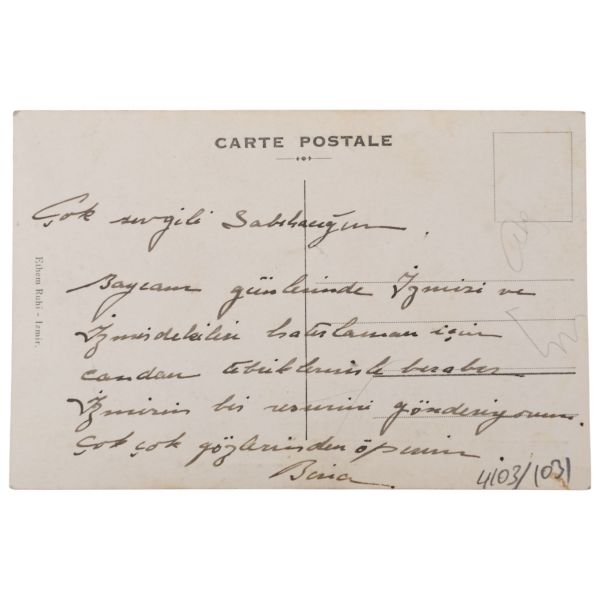 CARTE POSTALE
Çok sevgili Sabihacığım
Bayram günlerinde İzmiri ve
İzmirdekileri hatırlaman için
candan tebriklerimle beraber
İzmirin bir resmini gönderiyorum.
Çok çok gözlerinden öperim
4103/1031
Ethem Ruhi - İzmir.